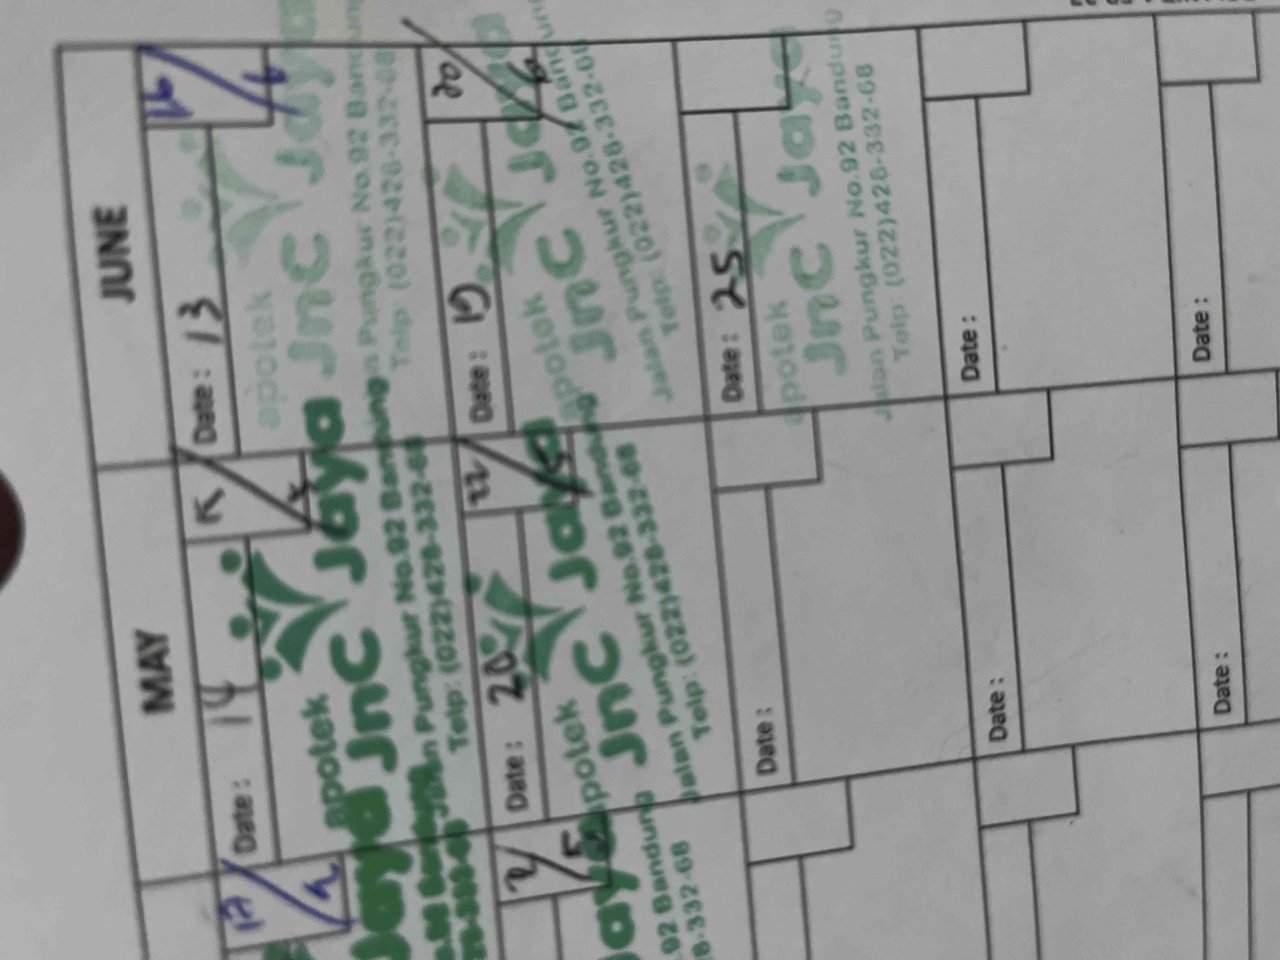 MAY
JUNE
17/5
Date : 14
15/5
apotek
Jnc Jaya
Jalan Pungkur No.92 Bandung
Telp: (022)426-332-68
Date : 13
16/6
apotek
Jnc Jaya
Jalan Pungkur No.92 Bandung
Telp: (022)426-332-68
Jaya
No.92 Bandung
Date : 20
22/5
apotek
Jnc Jaya
Jalan Pungkur No.92 Bandung
Telp: (022)426-332-68
Date : 19
20/6
apotek
Jnc Jaya
Jalan Pungkur No.92 Bandung
Telp: (022)426-332-68
2/5
Jaya
.92 Bandung
6-332-68
Date :
Date : 25
apotek
Jnc Jaya
Jalan Pungkur No.92 Bandung
Telp: (022)426-332-68
Date :
Date :
Date :
Date :